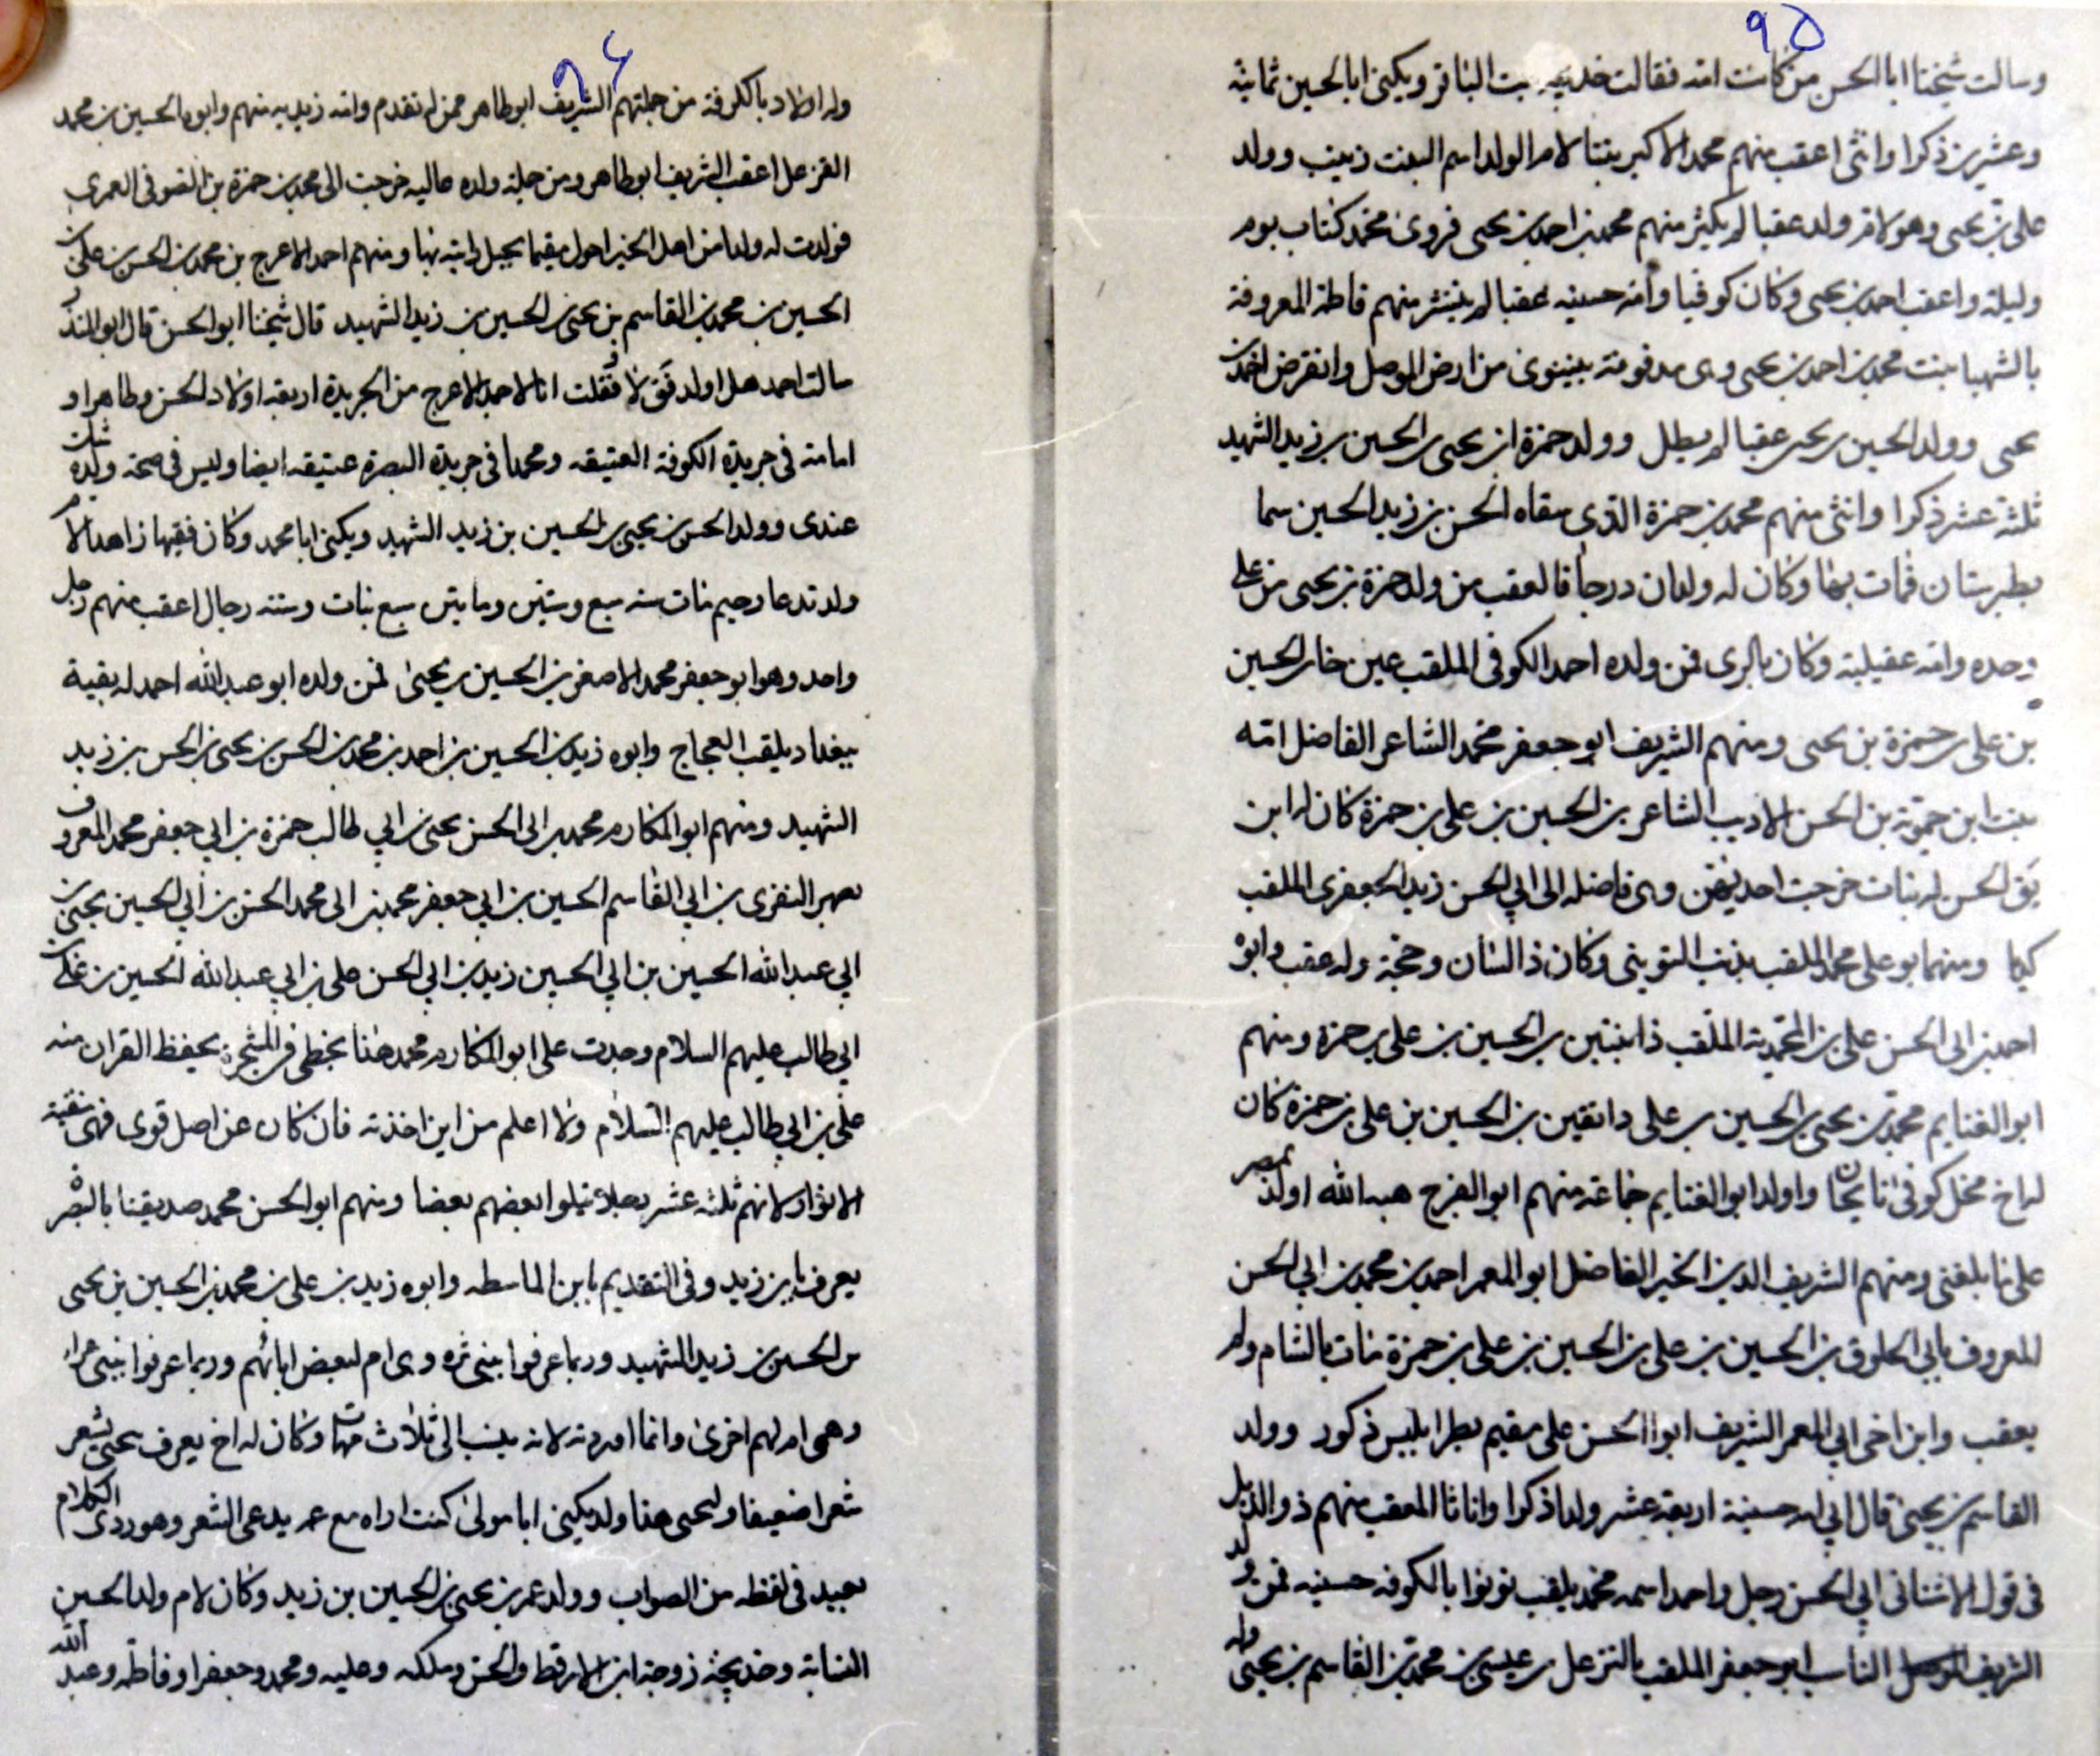 ٩٥
وسالت شيخنا ابا الحسن من كانت امه فقالت خديجه بنت الباقر ويكنى ابا الحسين ثمانية
وعشرين ذكرا وانثى اعقب منهم محمد الاكبر بنتا لام الولد اسم البنت زينب وولد
على بن يحيى وهو لام ولد عقبا لم يكثر منهم محمد بن احمد بن يحيى فروى محمد كتاب يوم
وليلة واعقب احمد بن يحيى وكان كوفيا وامه حسينيه عقبا لم ينتشر منهم فاطمة المعروفة
بالشهبا بنت محمد بن احمد بن يحيى وهى مدفونة بنينوى من ارض الموصل وانقرض احمد بن
يحيى وولد الحسين بن يحيى عقبا لم يطل وولد حمزة ابن يحيى بن الحسين بن زيد الشهيد
ثلثة عشر ذكرا وانثى منهم محمد بن حمزة الذى سقاه الحسن بن زيد الحسين سما
بطبرستان فمات بها وكان له ولدان درجا فالعقب من ولد حمزة بن يحيى من على
وحده وامه عقيلية وكان بالرى فمن ولده احمد الكوفى الملقب عين خار الحسين
بن على بن حمزة بن يحيى ومنهم الشريف ابو جعفر محمد الشاعر الفاضل امه
بنت ابن حمويه بن الحسن الاديب الشاعر بن الحسين بن على بن حمزة كان له ابن
يق الحسن له بنات خرجت احديهن وهى فاضله الى ابي الحسن زيد الجعفرى الملقب
ومنهم ابو على محمد الملقب وكان ذا لسان وحجة وله عقب وابوه
احمد بن ابى الحسن على بن المحمدية الملقب بن الحسين بن على بن حمزة ومنهم
ابو الغنايم محمد بن يحيى بن الحسين بن على دانقين بن الحسين بن على بن حمزة كان
له اخ كوفى واولد ابو الغنايم جماعة منهم ابو الفرج هبه الله اولد بمصر
على ما بلغنى ومنهم الشريف الدين الخير الفاضل ابو المعمر احمد بن محمد بن ابي الحسن
المعروف بابي الحلوق بن الحسين بن على بن الحسين بن على بن حمزة مات بالشام ولم
يعقب وابن اخى ابي المعمر الشريف ابو الحسن على مقيم بطرابلس ذكور وولد
القاسم بن يحيى قال ابي امه حسينية اربعة عشر ولدا ذكرا واناثا المعقب منهم ذو الذيل
فى قول الاشنانى ابي الحسن رجل واحد اسمه محمد يلقب نونوا بالكوفه حسنيه فمن ولد
الشريف النساب ابو جعفر الملقب بالتزعل بن عيسى بن محمد بن القاسم بن يحيى وله
٩٤
وله اولاد بالكوفة من جملتهم الشريف ابو طاهر ممن له تقدم وامه زيديه منهم وابوه الحسين بن محمد
اعقب الشريف ابو طاهر ومن جملة ولده عاليه خرجت الى محمد بن حمزة بن الصوفى العمرى
فولدت له ولدا من اهل الخير احول مقيما بجبل رايته بها ومنهم احمد الاعرج بن محمد بن الحسن بن على بن
الحسين بن محمد بن القاسم بن يحيى بن الحسين بن زيد الشهيد قال شيخنا ابو الحسن قال ابو المنذر
سالت احمد هل اولد فق لا فقلت انا لاحمد الاعرج من الجريدة اربعة اولاد الحسن وطاهرا و
امامة فى جريدة الكوفة العتيقه ومحمدا فى جريدة البصرة عتيقه ايضا وليس فى صحة ولده شك
عندى وولد الحسن بن يحيى بن الحسين بن زيد الشهيد ويكنى ابا محمد وكان فقيها زاهدا لام
ولد تدعا رحيم مات سنه سبع وستين ومايتين سبع بنات وستة رجال اعقب منهم رجل
واحد وهو ابو جعفر محمد الاصغر بن الحسين بن يحيى فمن ولده ابو عبد الله احمد له بقية
ببغداد يلقب العجاج وابوه زيد بن الحسين بن احمد بن محمد بن الحسن بن يحيى بن الحسن بن زيد
الشهيد ومنهم ابو المكارم محمد بن ابى الحسن يحيى بن ابي طالب حمزة بن ابي جعفر محمد المعروف
بصهر بن ابي القاسم الحسين بن ابي جعفر محمد بن ابى محمد الحسن بن ابي الحسين يحيى بن
ابي عبد الله الحسين بن ابي الحسين زيد بن ابي الحسن على بن ابي عبد الله الحسين بن على بن
ابي طالب عليهم السلام وجدت على ابو المكارم محمد هذا بخطى فى المشجرة يحفظ القران منه
على بن ابي طالب عليهم السلام ولا اعلم من اين اخذته فان كان عن اصل قوى فهى منقبة
لانهم ثلثه عشر رجلا بعضهم بعضا ومنهم ابو الحسن محمد صديقنا بالبصره
يعرف بابن زيد وفى التقديم بابن الماسطه وابوه زيد بن على بن محمد بن الحسين بن يحيى
بن الحسين بن زيد الشهيد وربما عرفوا ببنى وهى ام لبعض ابائهم وربما عرفوا ببنى
وهى ام لهم اخرى وانما اوردته لانه ينسب الى ثلاث امهات وكان له اخ يعرف يحيى يشعر
شعرا ضعيفا وليحيى هذا ولد يكنى ابا مولى كنت اراه مع عمه يدعى الشعر وهو ردى الكلام
بعيد فى لفظه من الصواب وولد عمر بن يحيى بن الحسين بن زيد وكان لام ولد الحسين
النسابة وخديجة زوجة ابن الارقط والحسن وملكه وعليه ومحمد وجعفرا وفاطمه وعبد الله